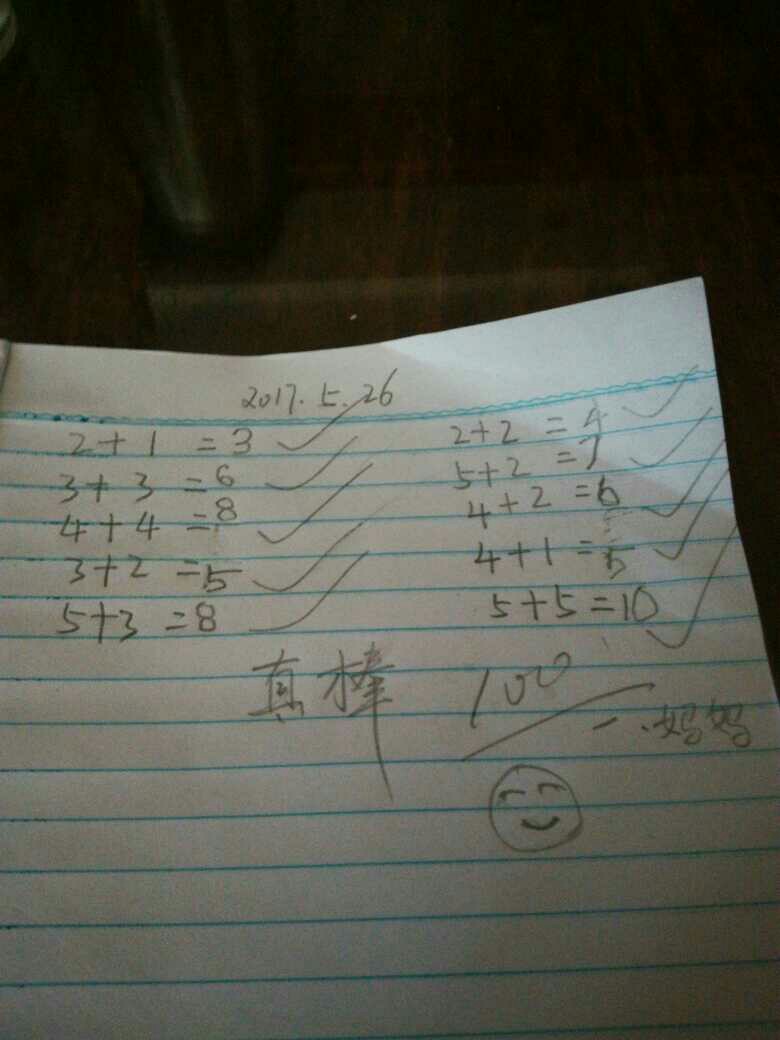 2017.5.26
2+1=3 2+2=4
3+3=6 5+2=7
4+4=8 4+2=6
3+2=5 4+1=5
5+3=8 5+5=10
真棒 100
一.妈妈